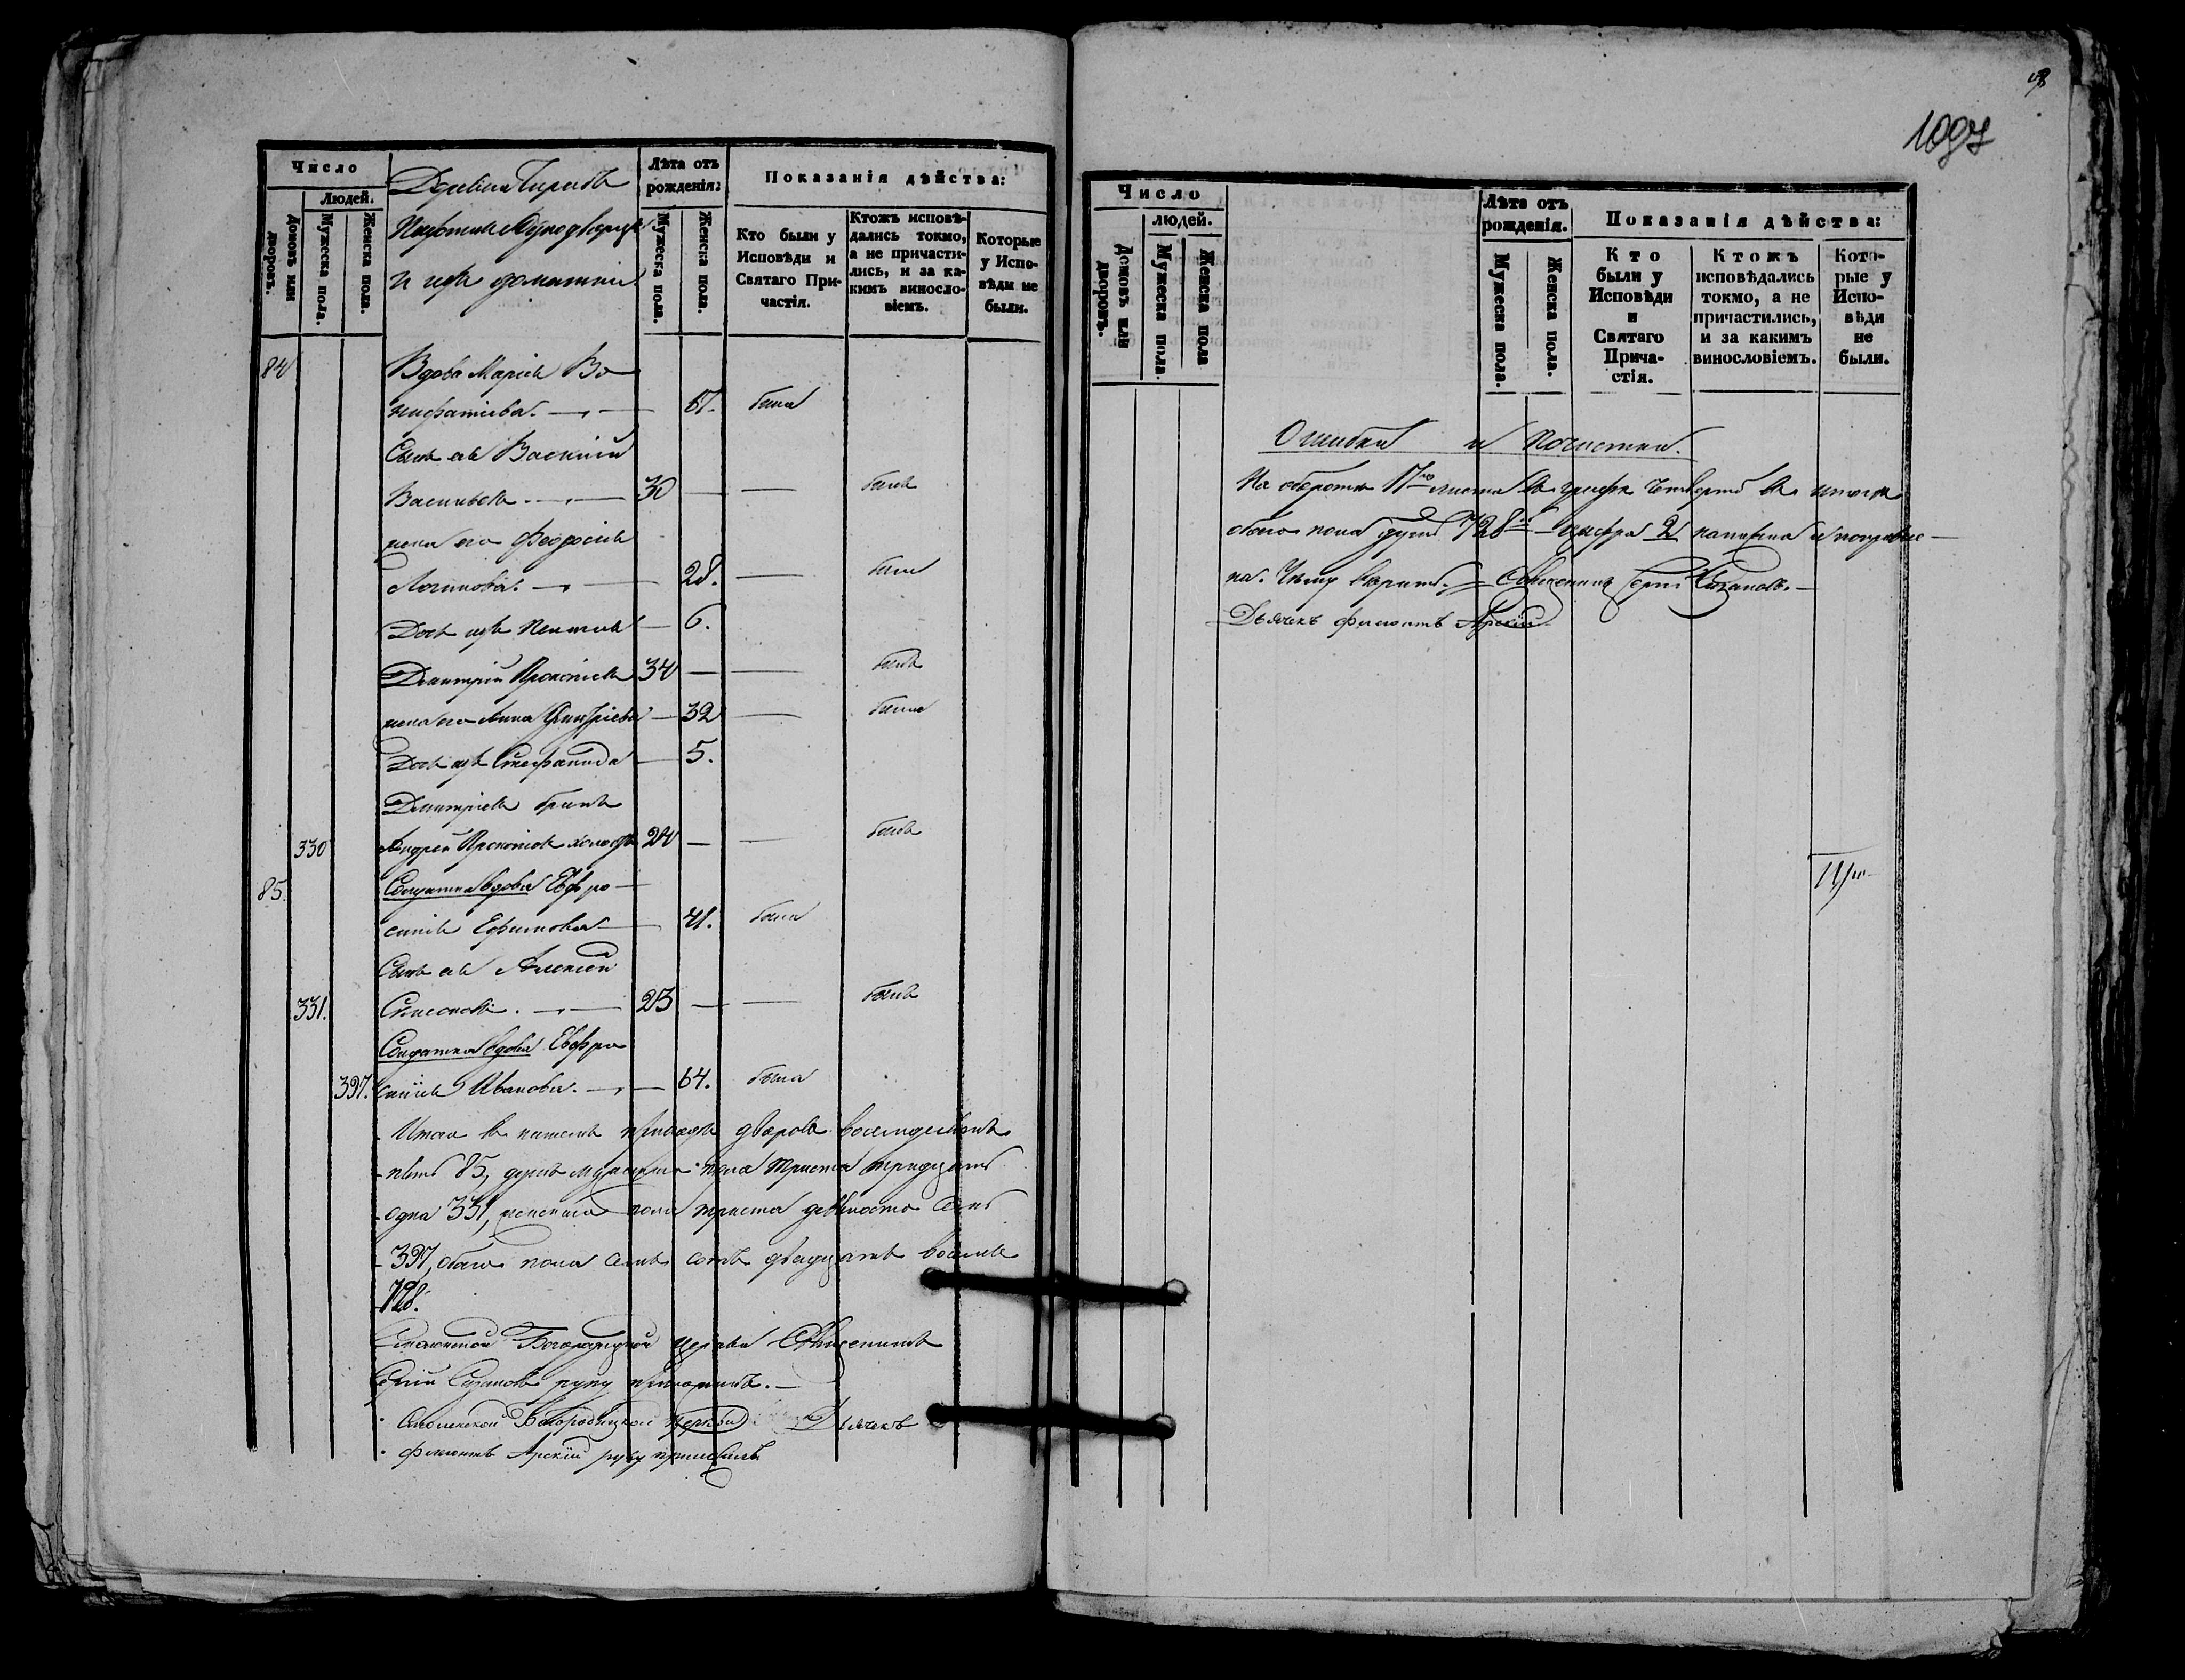 Число
Людей.
Домовъ или дворовъ.
Мужеска пола.
Женска пола.
Деревни
и ихъ домашніи
Лѣта отъ рожденія:
Мужеска пола.
Женска пола.
Показанія дѣйства:
Кто были у Исповѣди и Святаго Причастія.
Ктожъ исповѣдались токмо, а не причастились, и за какимъ винословіемъ.
Которые у Исповѣди не были.
84 Вдова Марія Во-
нифатіева. 67. была
Сынъ ея Василій
Васильевъ. 30 былъ
жена его Феодосія
Логинова. 28. была
Дочь ихъ 6.
Димитрій Прокопіевъ 34 былъ
жена его Анна 32 была
Дочь ихъ Стефанида 5.
Димитрія братъ
330 Андрей Прокопіевъ холостъ 24 былъ
85. Солдатка вдова Евфро-
синія Ефимова 41. была
Сынъ ея Алексѣй
331. Симеоновъ. 23 былъ
Солдатка вдова Евфро
397. синія Иванова. 64. была
Итого въ приходѣ дворовъ восемьдесятъ
пять 85, душъ мужеска пола триста тридцать
одна 331, женскаго пола триста девяносто семь
397, обоего пола семь сотъ двадцать восемь
728.
Смоленской Богородицкой церкви Священникъ
Сергій руку приложилъ.
Смоленской Богородицкой Церкви Дьячекъ
Филиппъ Арскій руку приложилъ
1097
Число
людей.
Домовъ или дворовъ.
Мужеска пола.
Женска пола
Лѣта отъ рожденія.
Мужеска пола.
Женска пола.
Показанія дѣйства:
Кто были у Исповѣди и Святаго Причастія.
Ктожъ исповѣдались токмо, а не причастились, и за какимъ винословіемъ.
Которые у Исповѣди не были.
Ошибки и почистки.
На оборотѣ 17го листа въ графѣ четвертой въ итогѣ
обоего пола душъ 728 цифра 2 и поправле-
на. Священникъ Сергій
Дьячекъ Филиппъ Арскій